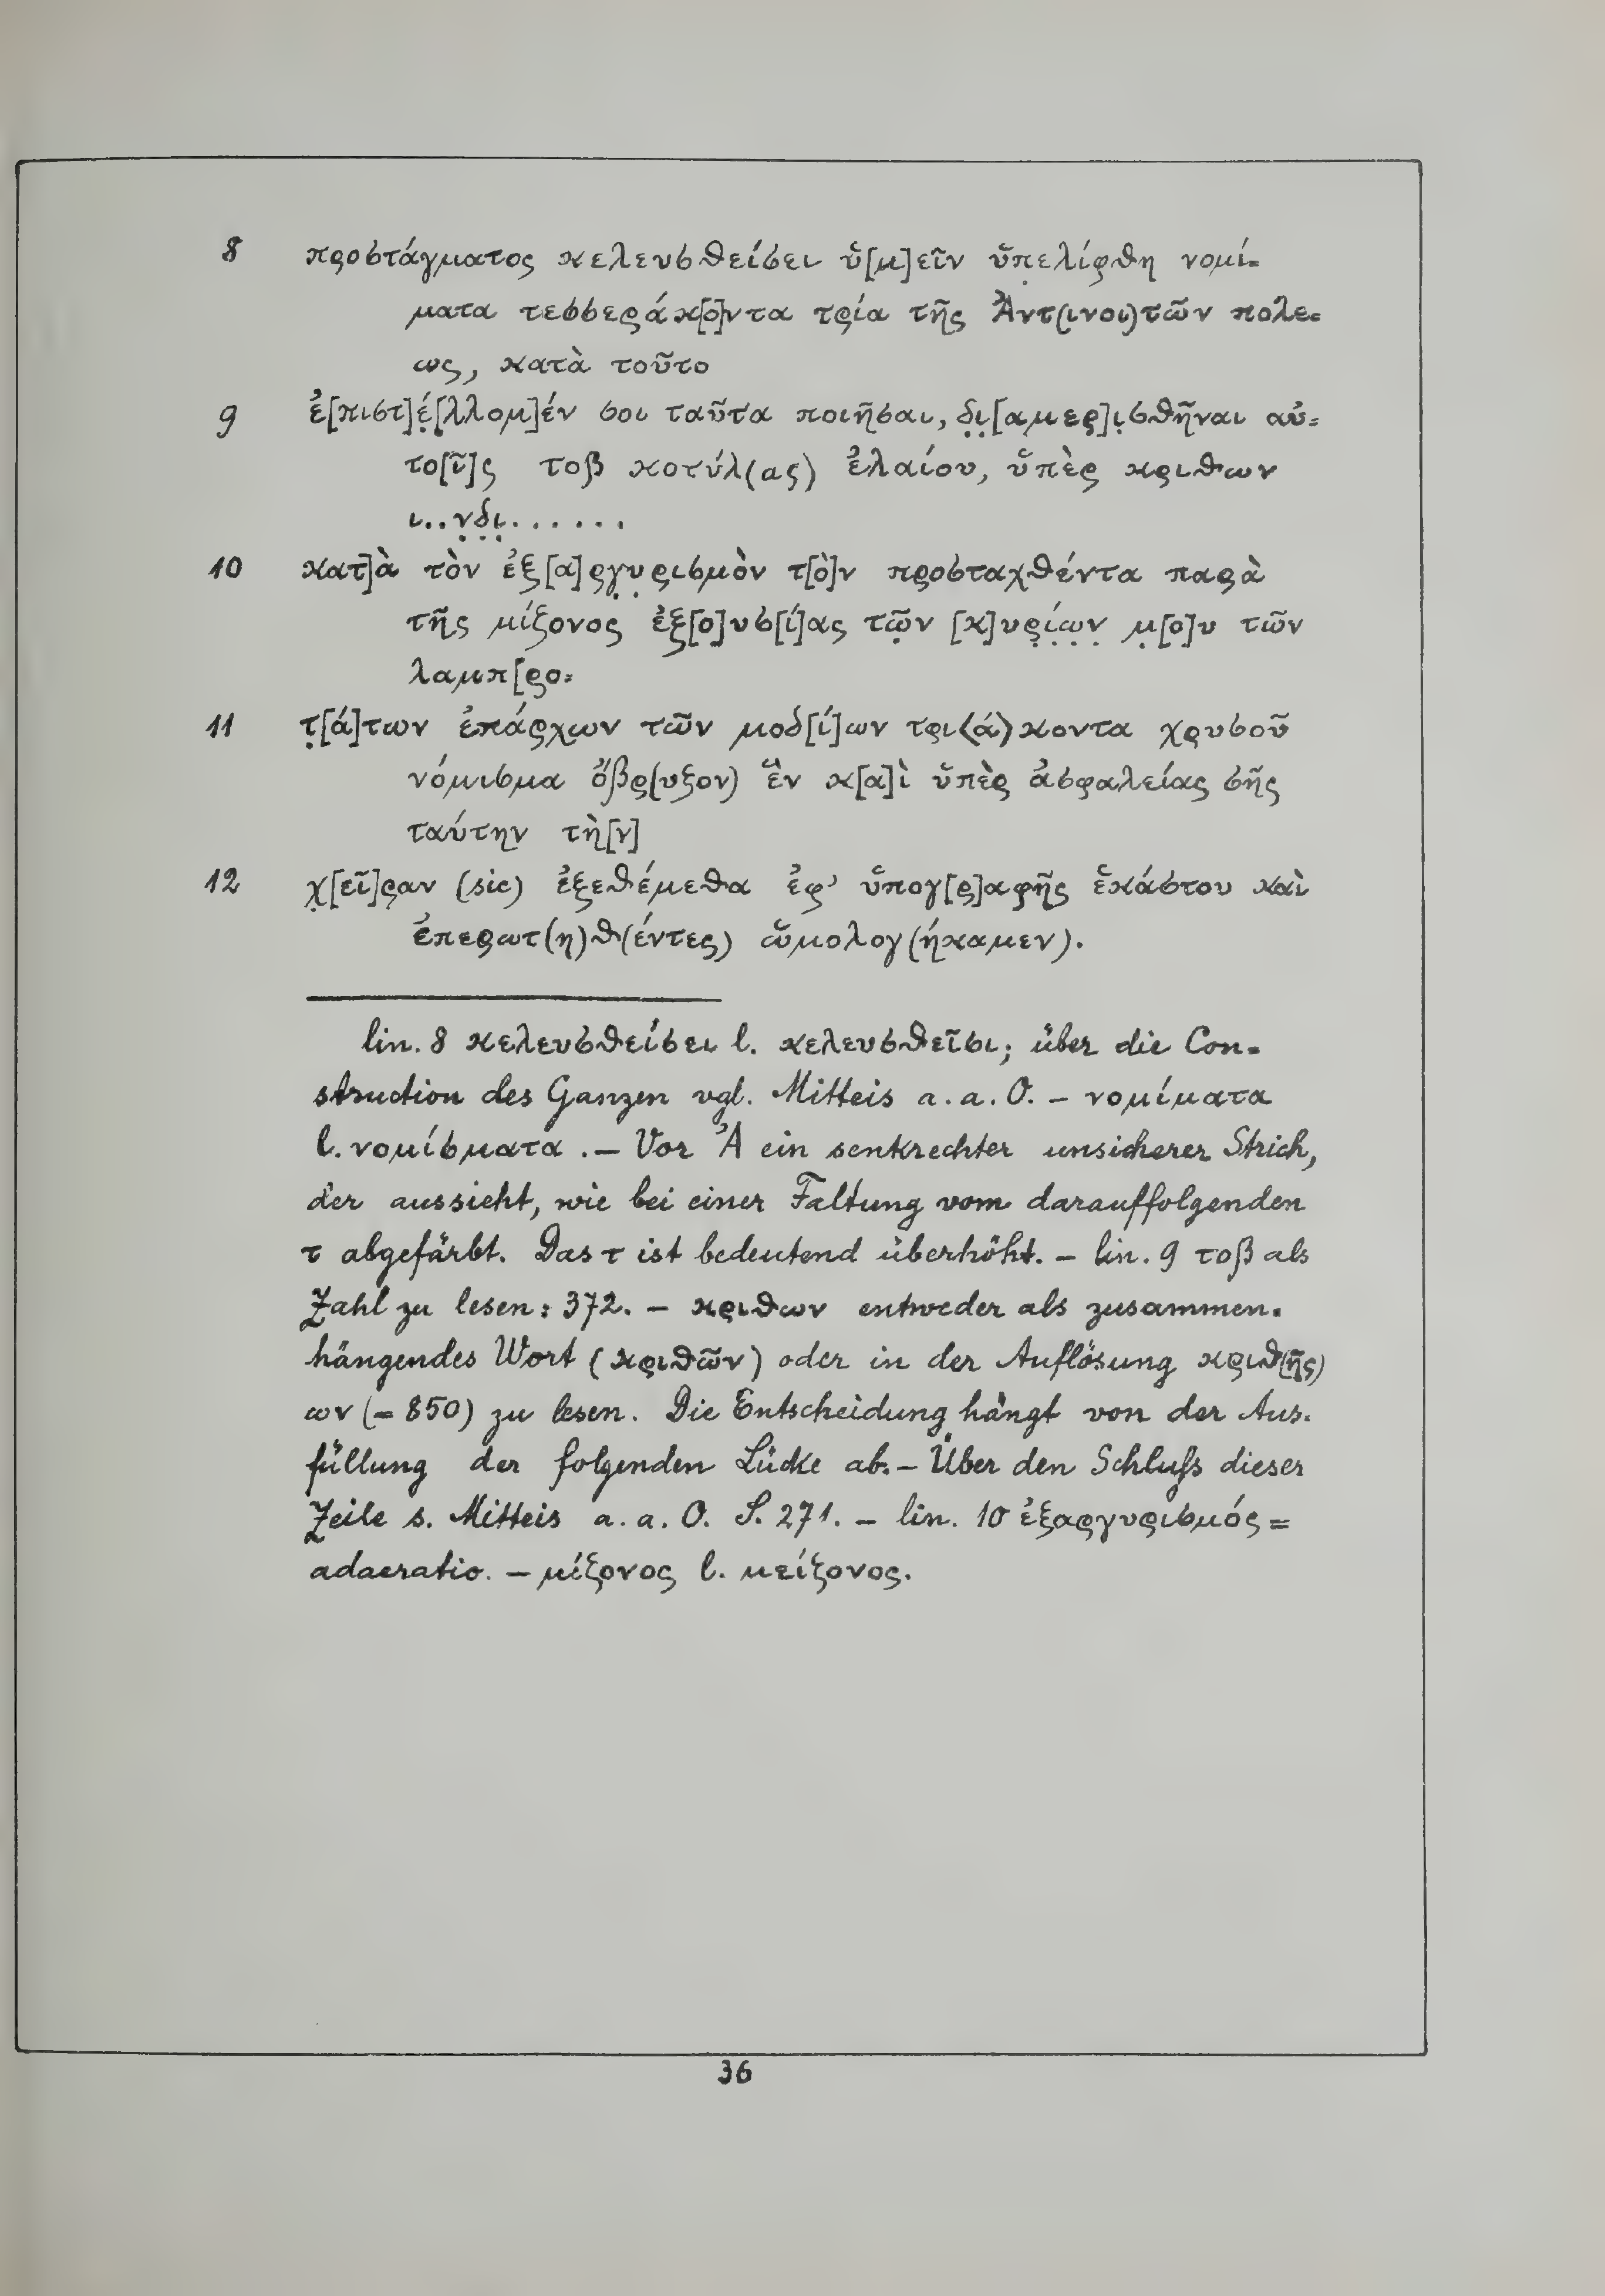 8 προστάγματος κελευσθείσει ὑ[μ]εῖν ὑπελίφθη νομί-
ματα τεσσεράκ[ο]ντα τρία τῆς Ἀντ(ινοι)τῶν πόλε-
ως, κατὰ τοῦτο
9 ἐ[πιστ]έ̣[λλομ]έν σοι ταῦτα ποιῆσαι, δ̣ι̣[αμερ]ι̣σθῆναι αὐ-
το[ῖ]ς τοβ κοτύλ(ας) ἐλαίου, ὑπὲρ κριθων
ι..ν̣δ̣ι̣......
10 κατ]ὰ τὸν ἐξ[α]ργ̣υ̣ρισμὸν τ[ὸ]ν προσταχθέντα παρὰ
τῆς μίζονος ἐξ[ο]υσ[ί]ας τῶ̣ν [κ]υρ̣ί̣ω̣ν̣ μ̣[ο]υ τῶν
λαμπ[ρο-
11 τ̣[ά]των ἐπάρχων τῶν μοδ[ί]ων τρι⟨ά⟩κοντα χρυσοῦ
νόμισμα ὄβρ(υξον) ἓν κ[α]ὶ ὑπὲρ ἀσφαλείας σῆς
ταύτην τὴ[ν]
12 χ̣[εῖ]ραν (sic) ἐξεθέμεθα ἐφ’ ὑπογ[ρ]αφῆς ἑκάστου καὶ
ἐπερωτ(η)θ(έντες) ὡμολογ(ήκαμεν).
lin. 8 κελευσθείσει l. κελευσθεῖσι; über die Con-
struction des Ganzen vgl. Mitteis a. a. O. – νομίματα
l. νομίσματα. – Vor Ἀ ein senkrechter unsicherer Strich,
der aussieht, wie bei einer Faltung vom darauffolgenden
τ abgefärbt. Das τ ist bedeutend überhöht. – lin. 9 τοβ als
Zahl zu lesen: 372. – κριθων entweder als zusammen-
hängendes Wort (κριθῶν) oder in der Auflösung κριθ(ῆς)
ων (= 850) zu lesen. Die Entscheidung hängt von der Aus-
füllung der folgenden Lücke ab. – Über den Schluſs dieser
Zeile s. Mitteis a. a. O. S. 271. – lin. 10 ἐξαργυρισμός =
adaeratio. – μίζονος l. μείζονος.
36